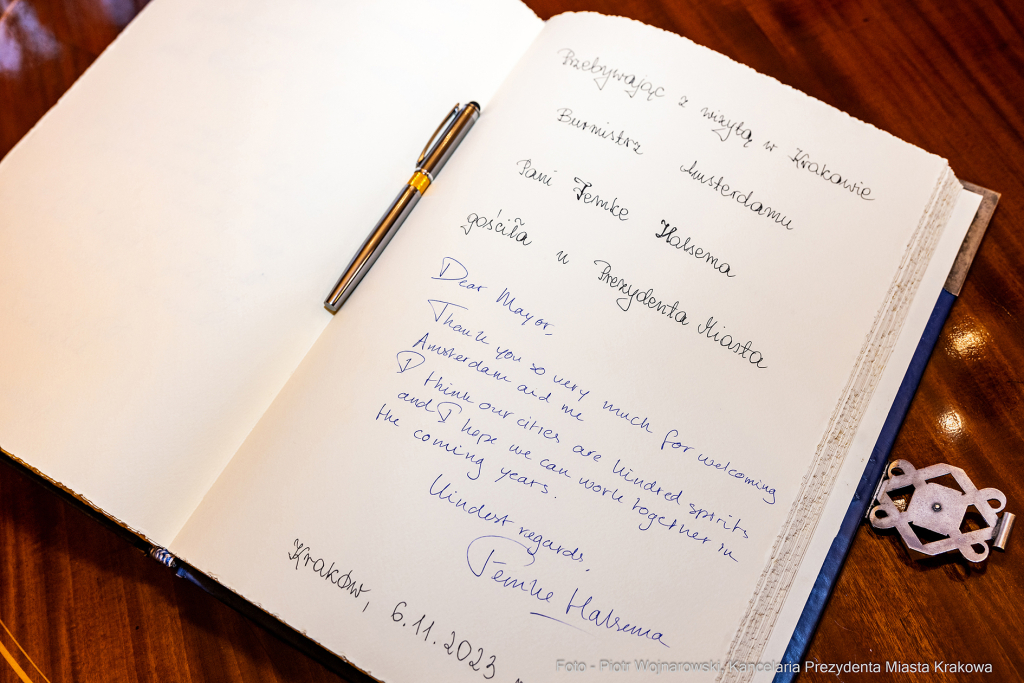 Przebywając z wizytą w Krakowie
Burmistrz Amsterdamu
Pani Femke Halsema
gościła u Prezydenta Miasta
Dear Mayor,
Thank you so very much for welcoming
Amsterdam and me
I think our cities are kindred spirits
and I hope we can work together in
the coming years.
Kindest regards,
Femke Halsema
Kraków, 6.11.2023
Foto - Piotr Wojnarowski, Kancelaria Prezydenta Miasta Krakowa